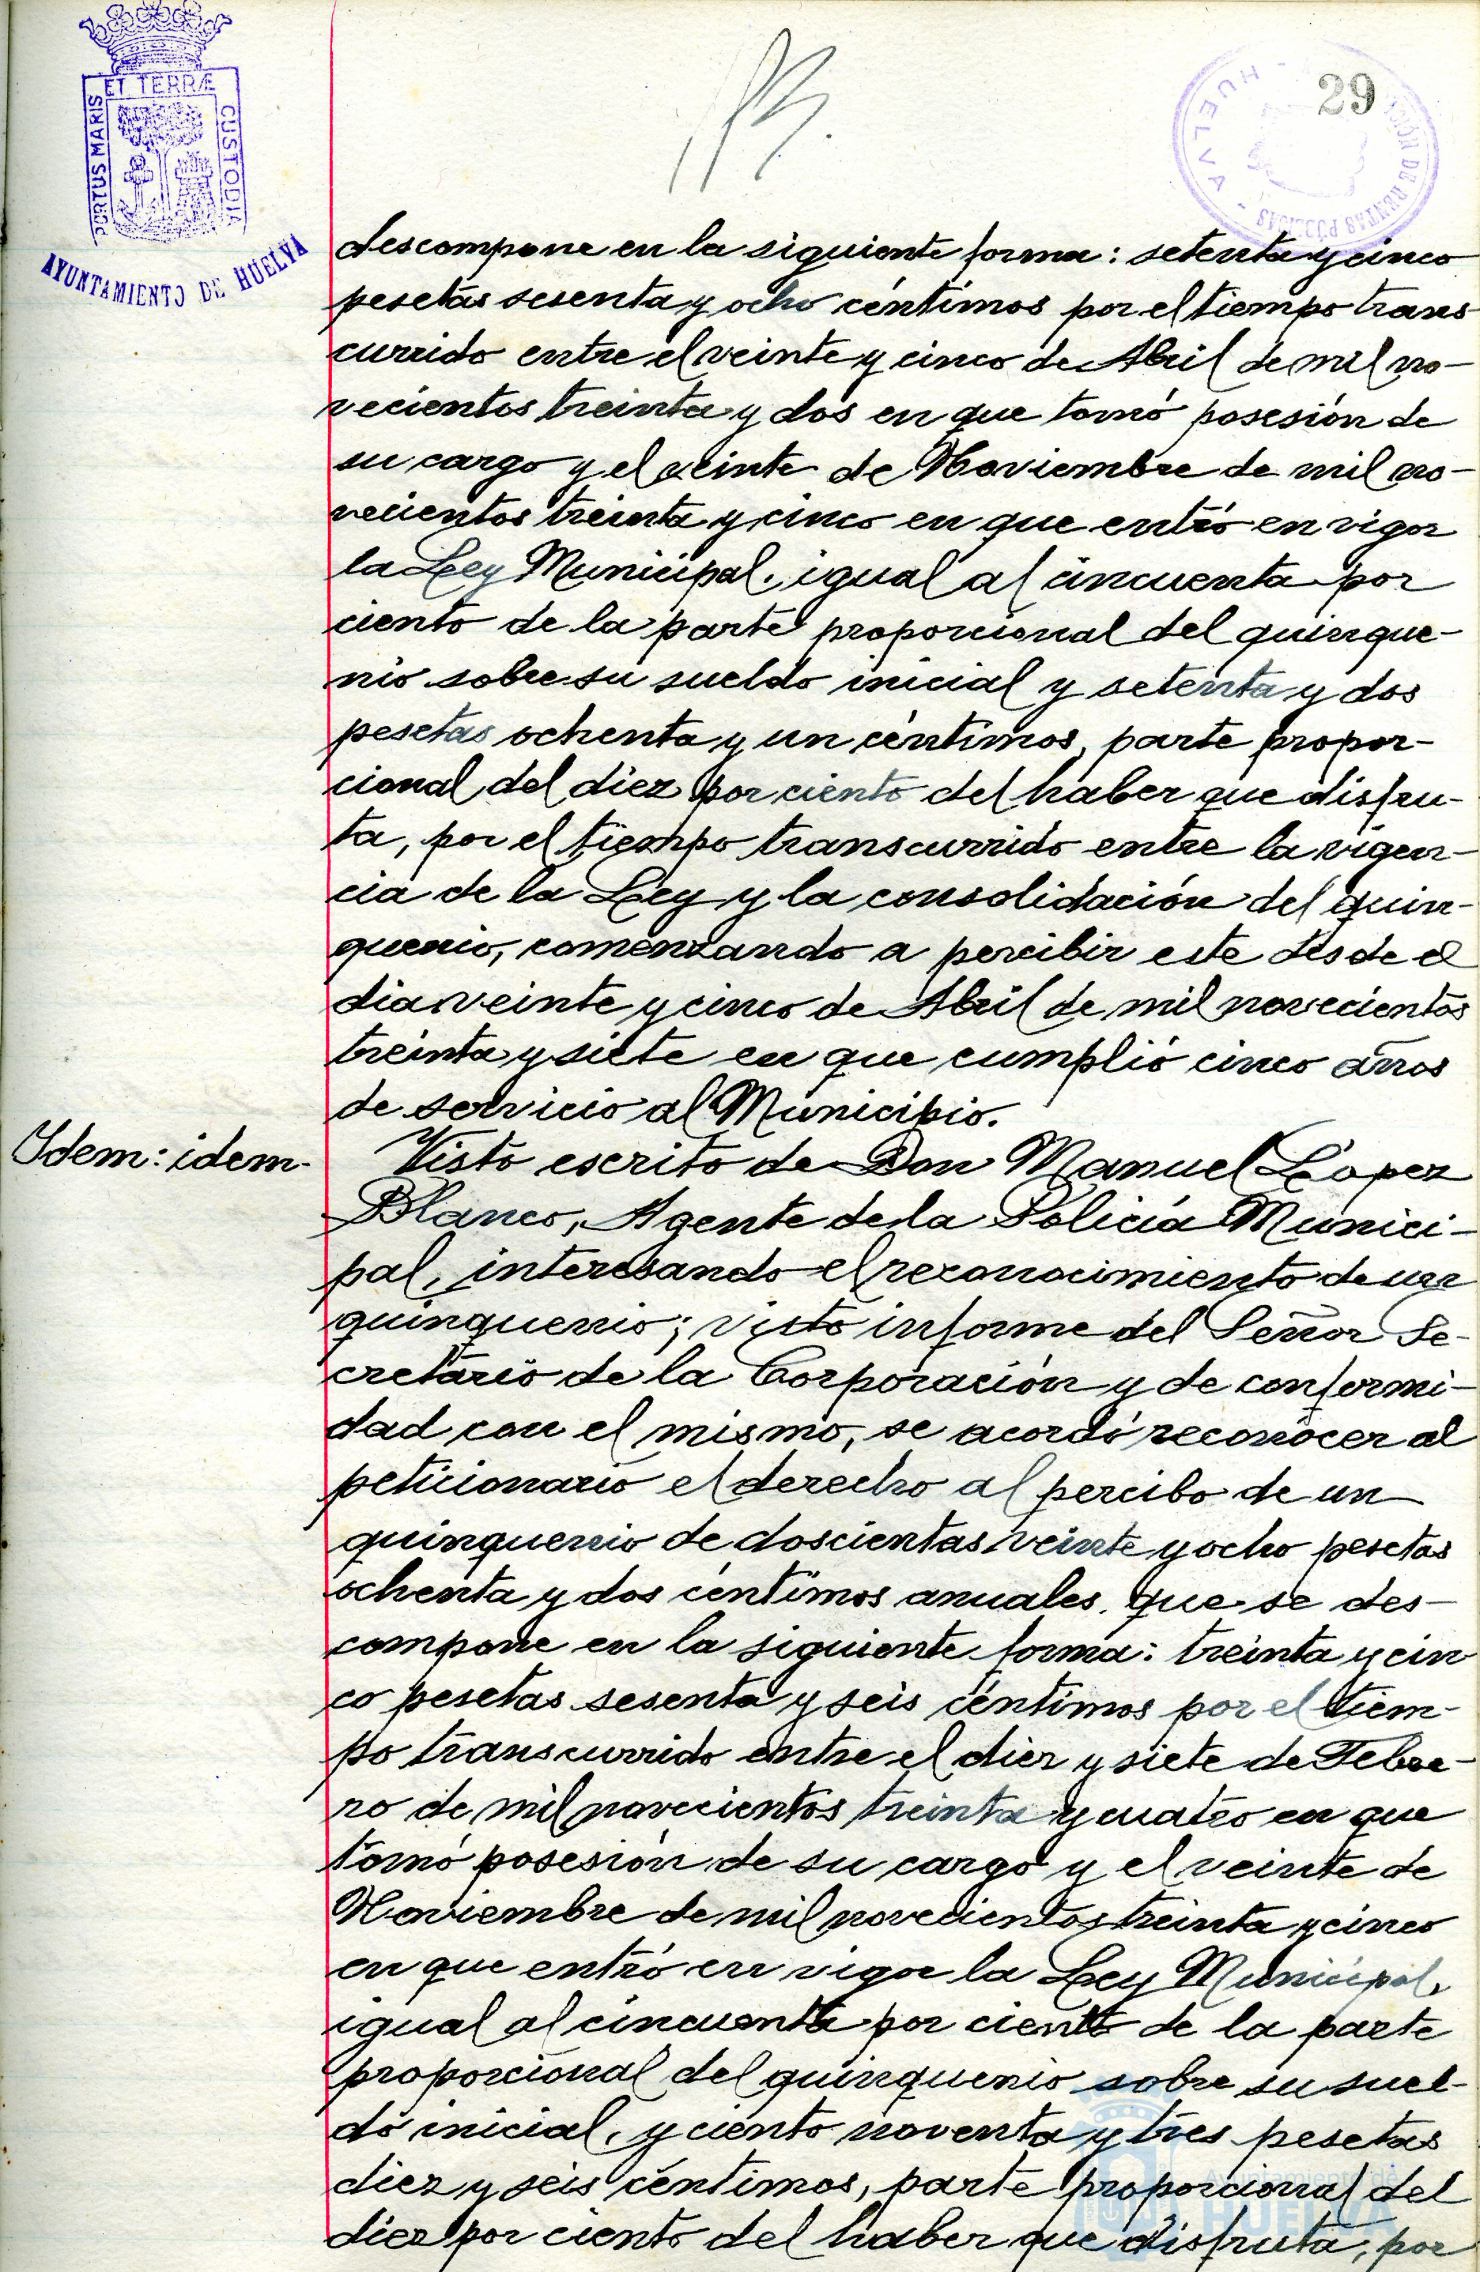 ET TERRÆ
PORTUS MARIS
CUSTODIA
AYUNTAMIENTO DE HUELVA
29
HUELVA
descompone en la siguiente forma: setenta y cinco
pesetas sesenta y ocho céntimos por el tiempo trans
currido entre el veinte y cinco de Abril de mil no-
vecientos treinta y dos en que tomó posesión de
su cargo y el veinte de Noviembre de mil no-
vecientos treinta y cinco en que entró en vigor
la Ley Municipal, igual al cincuenta por
ciento de la parte proporcional del quinque-
nio sobre su sueldo inicial y setenta y dos
pesetas ochenta y un céntimos, parte propor-
cional del diez por ciento del haber que disfru-
ta, por el tiempo transcurrido entre la vigen-
cia de la Ley y la consolidación del quin-
quenio, comenzando a percibir este desde el
dia veinte y cinco de Abril de mil novecientos
treinta y siete en que cumplió cinco años
de servicio al Municipio.
Idem: idem-
Visto escrito de Don Manuel López
Blanco, Agente de la Policía Munici-
pal, interesando el reconocimiento de un
quinquenio; visto informe del Señor Se-
cretario de la Corporación y de conformi-
dad con el mismo, se acordó reconocer al
peticionario el derecho al percibo de un
quinquenio de doscientas veinte y ocho pesetas
ochenta y dos céntimos anuales, que se des-
compone en la siguiente forma: treinta y cin
co pesetas sesenta y seis céntimos por el tiem-
po transcurrido entre el diez y siete de Febre-
ro de mil novecientos treinta y cuatro en que
tomó posesión de su cargo y el veinte de
Noviembre de mil novecientos treinta y cinco
en que entró en vigor la Ley Municipal,
igual al cincuenta por ciento de la parte
proporcional del quinquenio sobre su suel-
do inicial, y ciento noventa y tres pesetas
diez y seis céntimos, parte proporcional del
diez por ciento del haber que disfruta, por
Ayuntamiento de
HUELVA